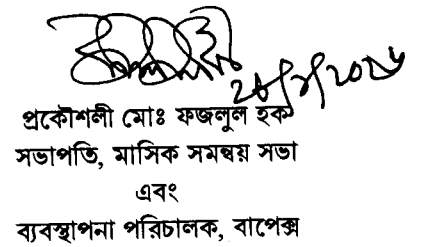 প্রকৌশলী মোঃ ফজলুল হক
সভাপতি, মাসিক সমন্বয় সভা
এবং
ব্যবস্থাপনা পরিচালক, বাপেক্স